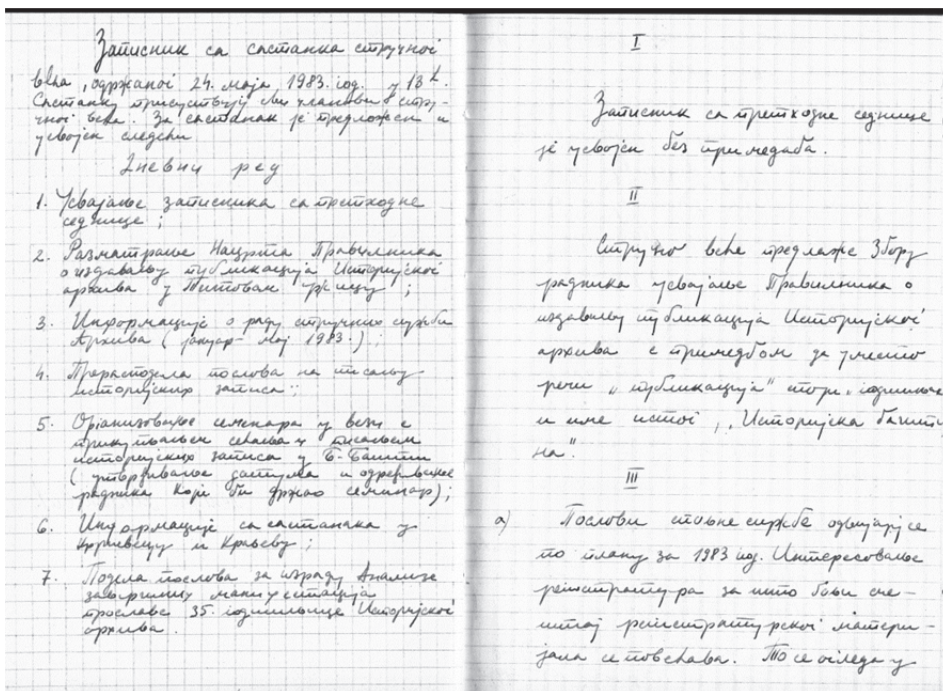 Записник са састанка стручног
већа, одржаног 24. маја 1983. год. у 13 h.
Састанку присуствују сви чланови стру-
чног већа. За састанак је предложен и
усвојен следећи
Дневни ред
1. Усвајање записника са претходне
седнице;
2. Разматрање Нацрта Правилника
о издавању публикација Историјског
архива у Титовом Ужицу;
3. Информације о раду стручних служби
Архива (јануар - мај 1983.);
4. Прерасподела послова на писању
историјских записа;
5. Организовање семинара у вези с
прикупљањем и писањем
историјских записа у Б. Башти
(утврђивање датума и одређивање
радника који би држао семинар);
6. Информације са састанака у
и Краљеву;
7. Подела послова за израду Анализе
прославе 35. годишњице Историјског
архива.
I
Записник са претходне седнице
је усвојен без примедаба.
II
Стручно веће предлаже Збору
радника усвајање Правилника о
издавању публикација Историјског
архива с примедбом да уместо
речи „публикација" стоји „годишњак
и име истог, „Историјска башти
на".
III
а) Послови службе одвијају се
по плану за 1983 год. Интересовање
регистратура за што бољи сме-
штај регистратурског матери-
јала се повећава. То се огледа у